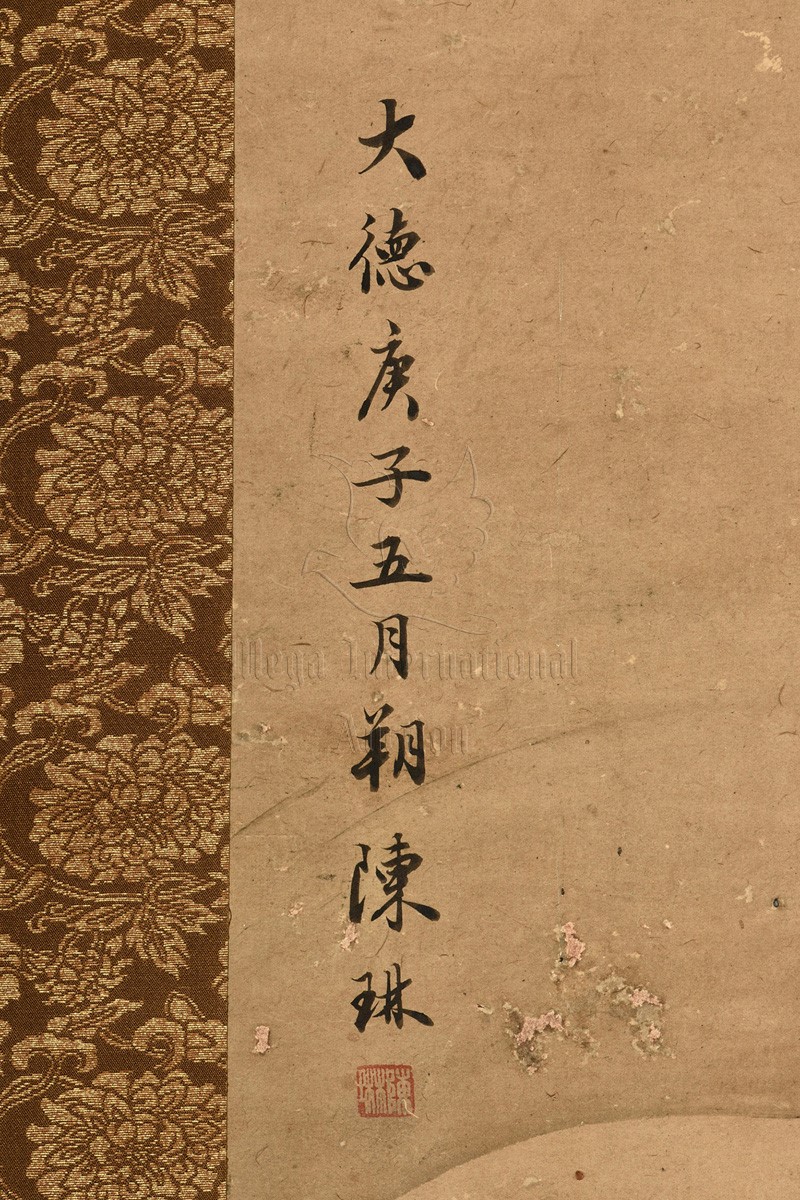 大德庚子五月朔陳琳
陳琳
Mega International
Auction